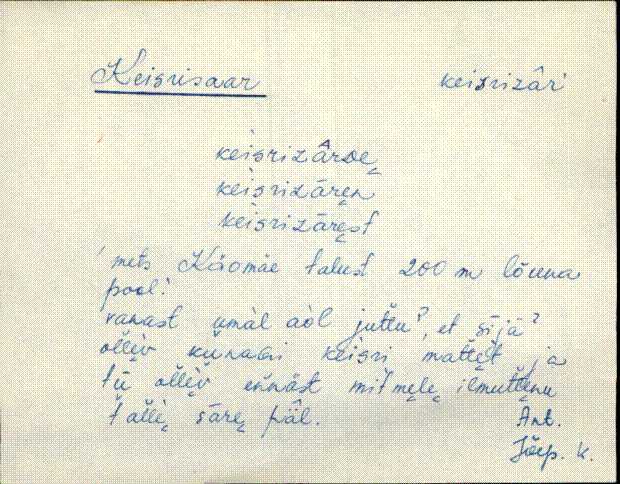 Keisrisaar keisrizâŕ
keisrizârᴅe̬
keisrizāre̬n
keisrizāre̬st
'mets Käomäe talust 200 m lõuna
pool.'
vanast umàl aòl juttu?, et sījä?
ollèv kunagi keisri mattet, ja
tū ollèv ennäst mitmele̬ ilmuttenu
tallè̬ sāre̬ päl.
Ant.
Jõep. k.